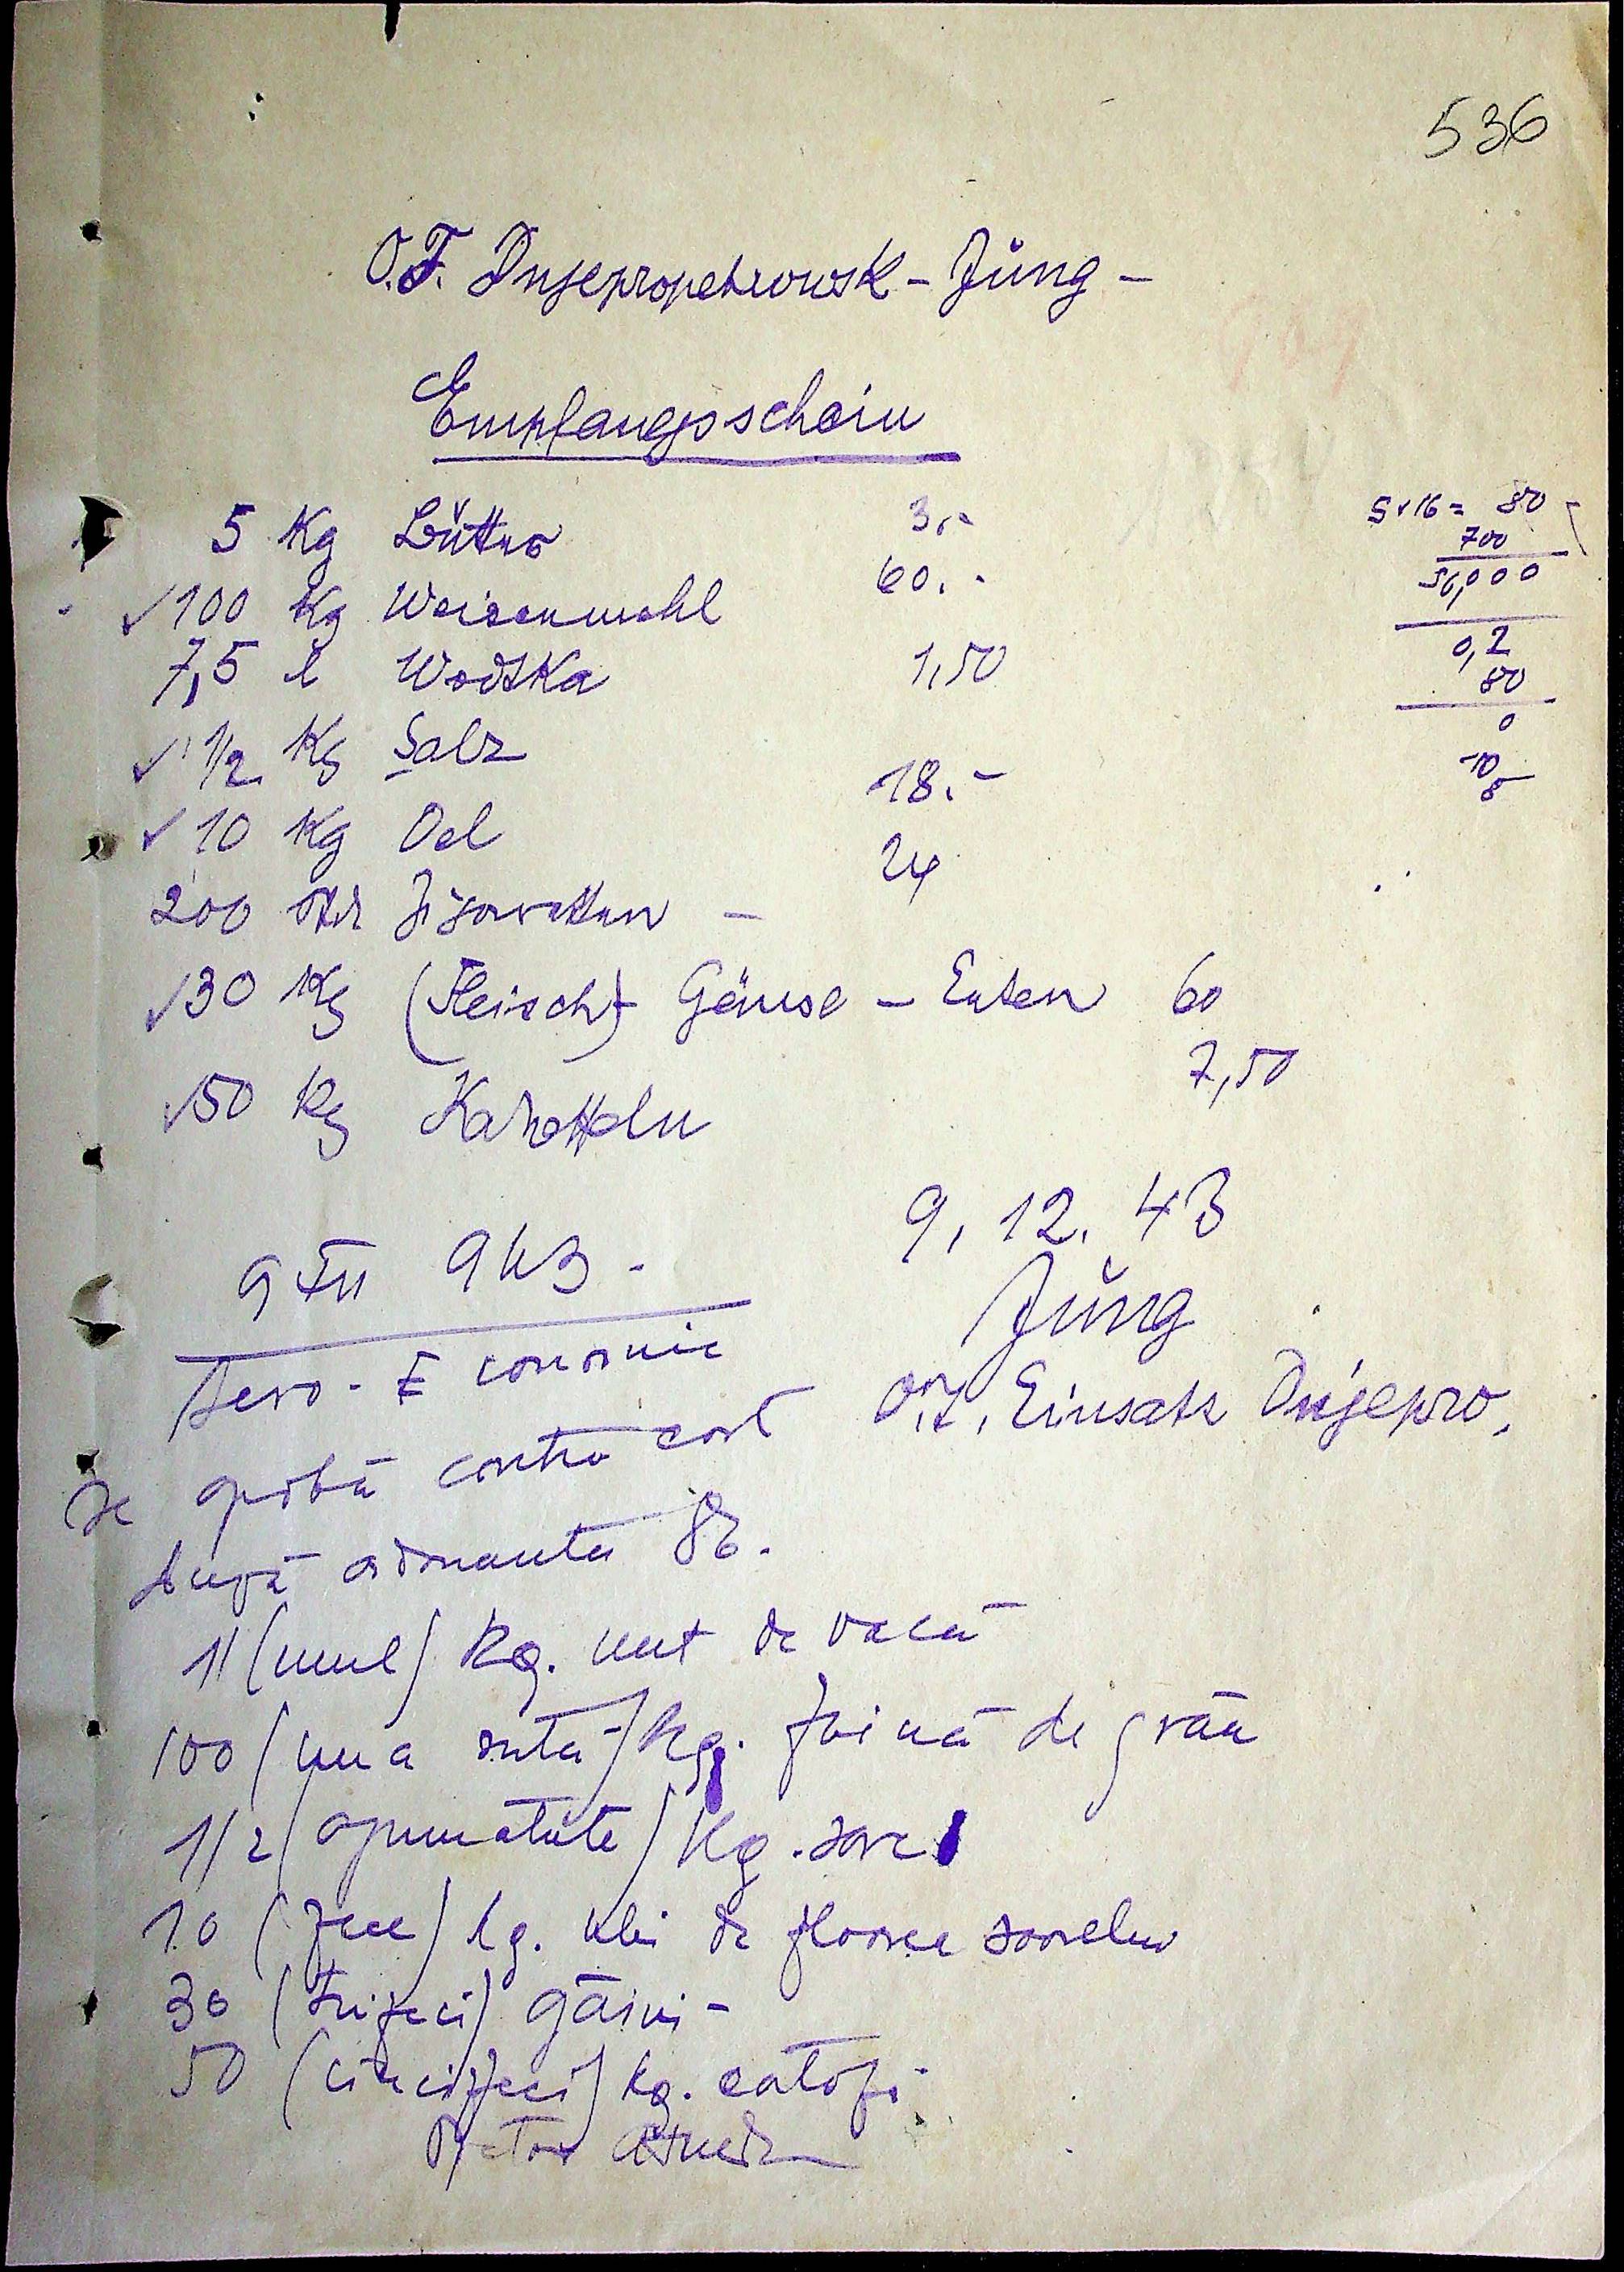 536
O.T. Dnjepropetrowsk - Jüng -
Empfangsschein
5 Kg Butter 3,-
✓100 Kg Weizenmehl 60.-
7,5 l Wodka 1,50
✓ 1/2 Kg Salz
✓ 10 Kg Oel 18.-
200 Stck Zigaretten - 24
✓30 Kg (Fleisch) Gänse - Enten 60
✓50 Kg Kartoffeln 7,50
5 x 16 = 80
700
56,000
0,2
80
0
10
8
9, 12. 43
Jung
O.T. Einsatz Dnjepro.
9 XII 943.
Serv. Economic
Se aprobă contra cost
după ordonanta 86.
1 (unul) kg. unt de vacă
100 (una sută) kg. făină de grâu
1/2 (jumatate) kg. sare
10 (zece) kg. ulei de floarea soarelui
30 (treizeci) găini -
50 (cincizeci) kg. cartofi
Pretor